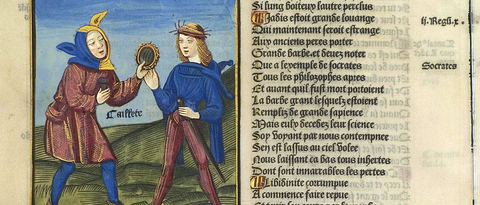 Caillete
Si lung boiteux lautre perclus
Jadis estoit grande louange
ii. Regũ. x.
Qui maintenant seroit estrange
Aux anciens peres porter
Grande barbe et doit noter
Que a lexemple de socrates
Socrates
Tous les philosophes apres
Et auant quil fust mort portoient
La barbe grant lesquelz estoient
Remplis de grande sapience
Mais decedez leur science
Soy voyant par nous contempnee
Sen est lassus au ciel volee
Nous laissant ca bas tous inhertes
Dont sont innarrables les pertes
Libidinite corrumpue
A commence faire repue